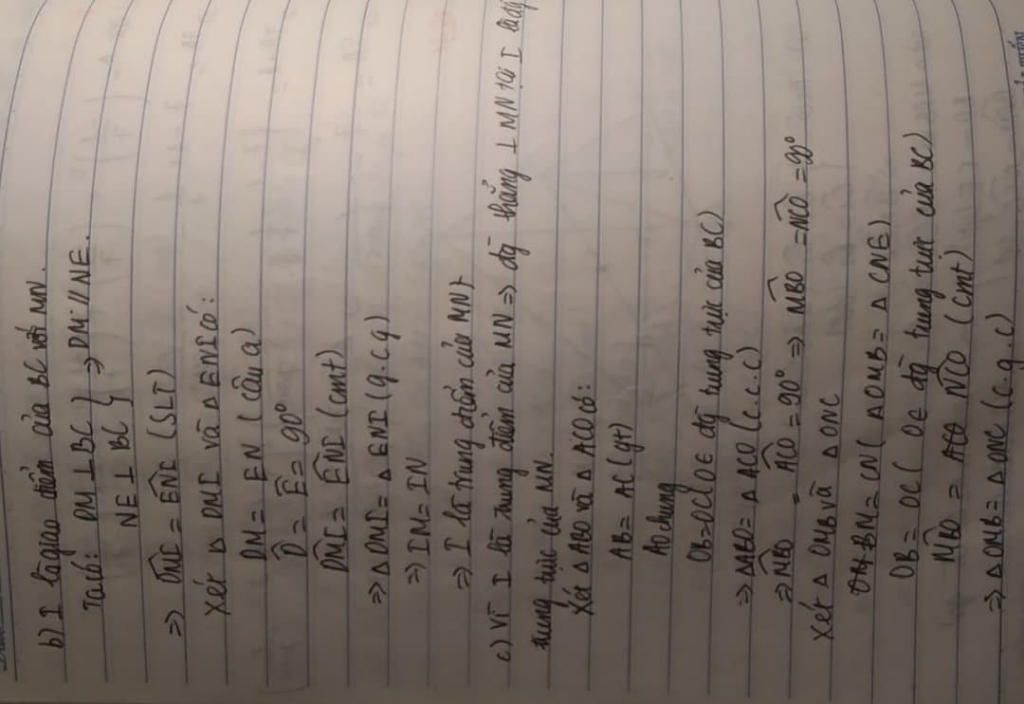 b) I là giao điểm của BC với MN.
Ta có: DM ⊥ BC } => DM // NE.
NE ⊥ BC
=> DMI = ENI (SLT)
Xét Δ DMI và Δ ENI có:
DM = EN (câu a)
D = E = 90°
DMI = ENI (cmt)
=> Δ DMI = Δ ENI (g.c.g)
=> IM = IN
=> I là trung điểm của MN
c) Vì I là trung điểm của MN => đg thẳng ⊥ MN tại I là đg
trung trực của MN.
Xét Δ ABO và Δ ACO có:
AB = AC (gt)
AO chung
OB = OC (O ∈ đg trung trực của BC)
=> Δ ABO = Δ ACO (c.c.c)
=> MBO = ACO = 90° => MBO = NCO = 90°
Xét Δ OMB và Δ ONC
BM = CN (Δ DMB = Δ CNE)
OB = OC (O ∈ đg trung trực của BC)
MBO = NCO (cmt)
=> Δ OMB = Δ ONC (c.g.c)